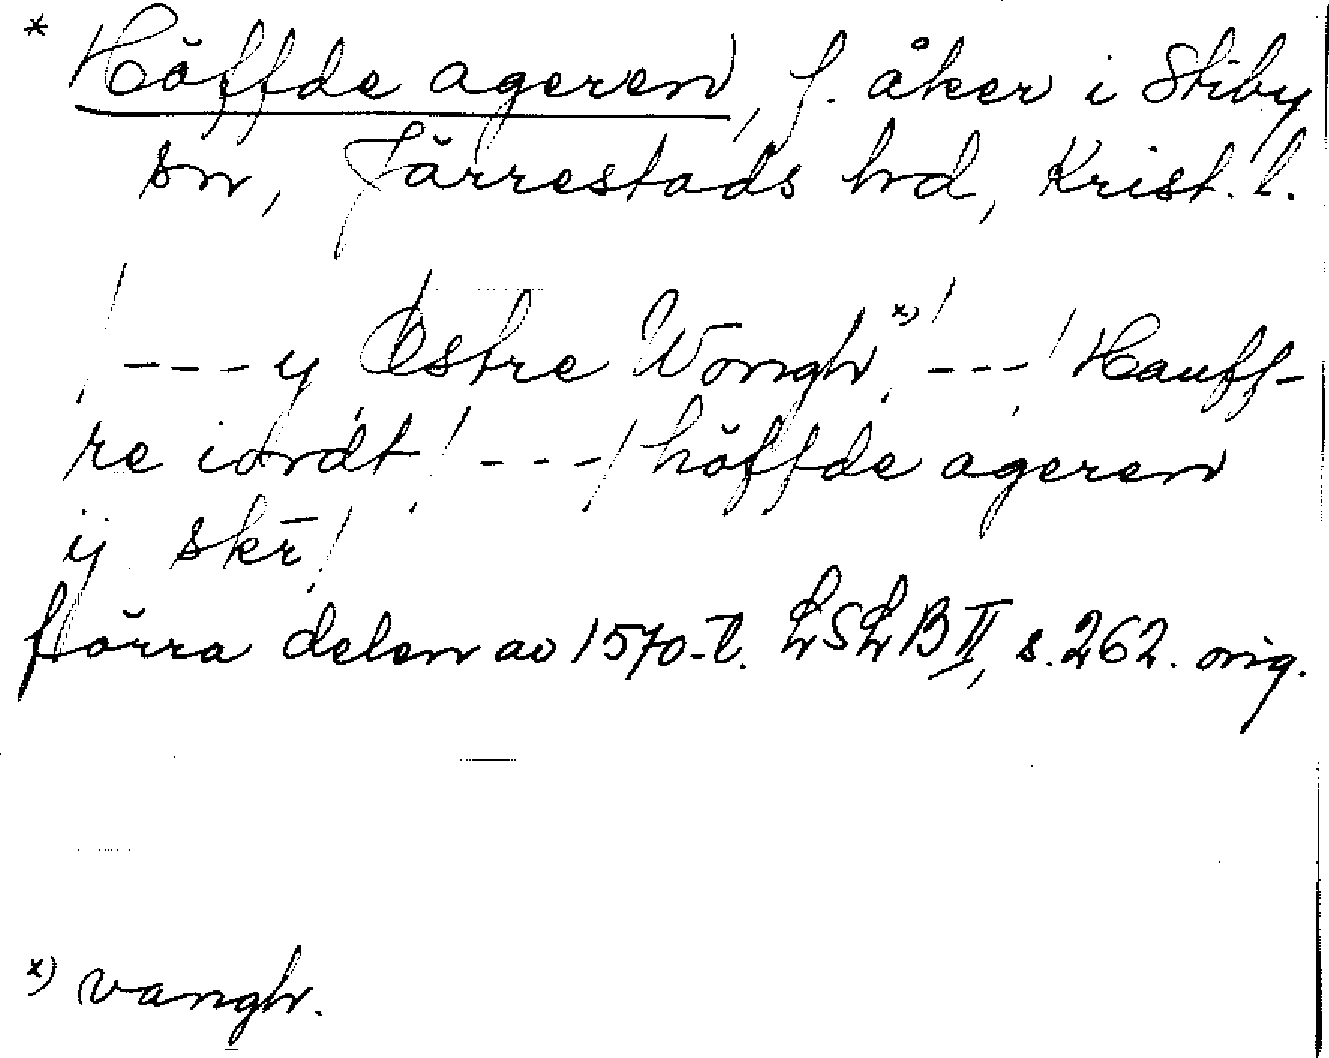 * Höffde ageren, f. åker i Stiby
sn, Järrestads hd, Krist. l.
/ - - - y Østre Wongh x) / - - - / Hauff-
re iordt / - - - / höffde ageren
ij skr̄ /
förra delen av 1570-t. LSLB II, s. 262. orig.
x) vangh.